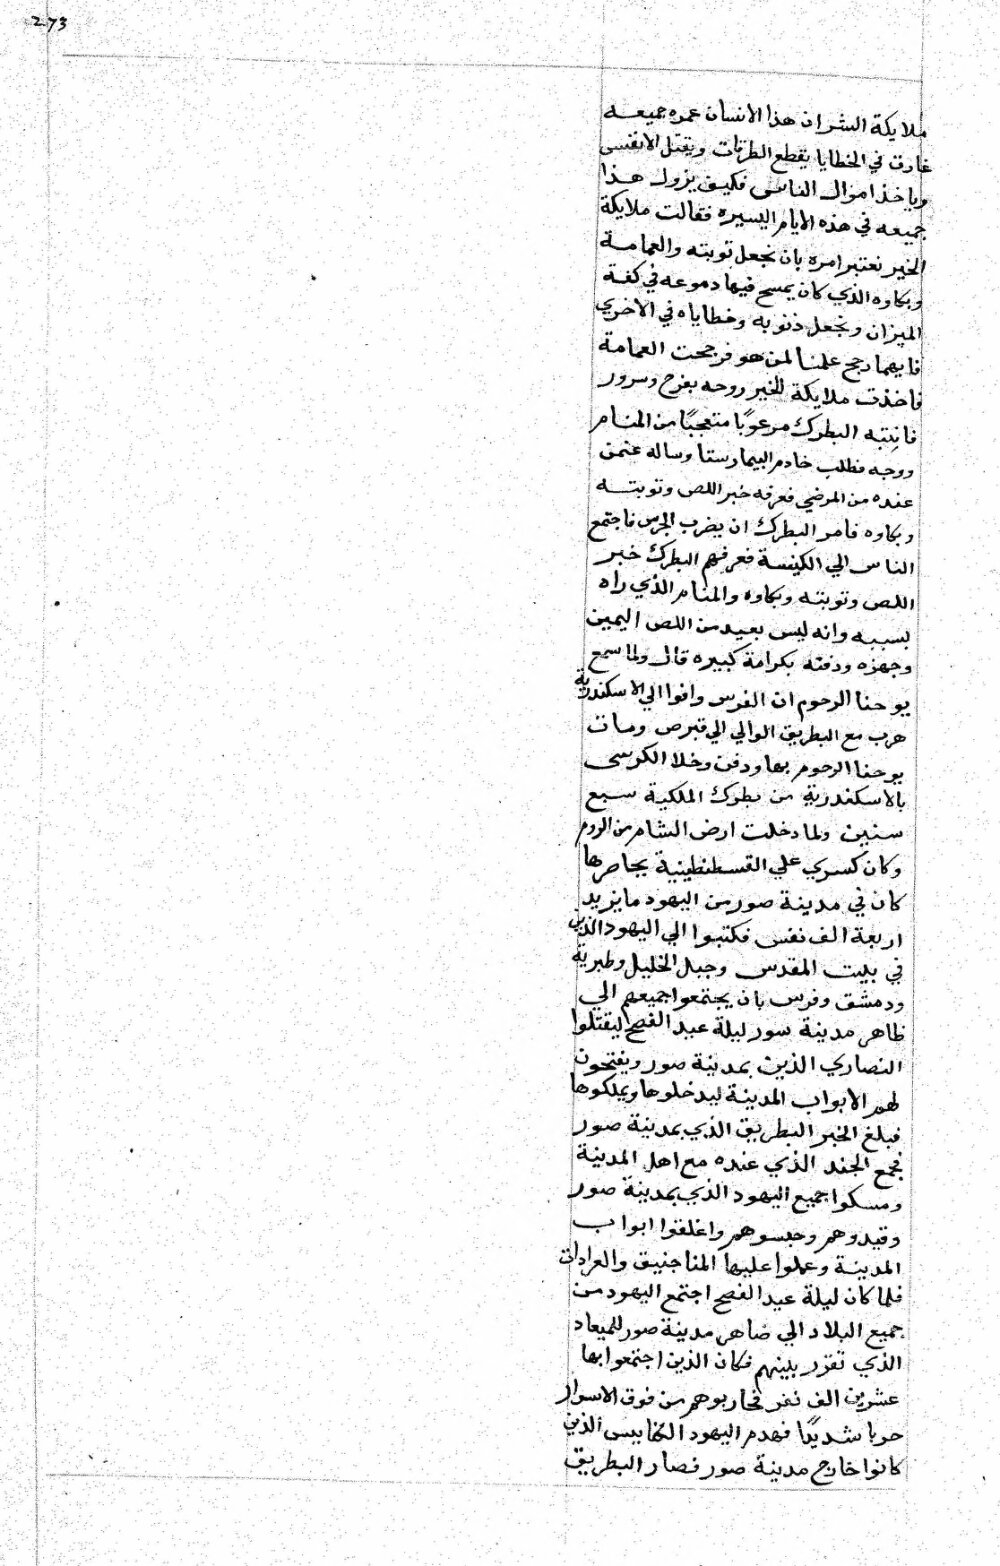 273
ملايكة الشر ان هذا الانسان عمره جميعه
غارق في الخطايا يقطع الطرقات ويقتل الانفس
وياخذ اموال الناس فكيف يزول هذا
جميعه في هذه الايام اليسيره فقالت ملايكة
الخير نعتبر امره بان نجعل توبته والعمامة
وبكاوه الذي كان يمسح فيها دموعه في كفة
الميزان ونجعل ذنوبه وخطاياه في الاخري
فايهما رجح علمنا لمن هو فرجحت العمامة
فاخذت ملايكة الخير روحه بفرح وسرور
فانتبه البطرك مرعوبًا متعجبًا من المنام
ووجه فطلب خادم البيمارستا وساله عمن
عنده من المرضي فعرفه خبر اللص وتوبته
وبكاوه فامر البطرك ان يضرب الجرس فاجتمع
الناس الي الكنيسة فعرفهم البطرك خبر
اللص وتوبته وبكاوه والمنام الذي راه
بسببه وانه ليس بعيد من اللص اليمين
وجهزه ودفنه بكرامة كبيره قال ولما سمع
يوحنا الرحوم ان الفرس وافوا الي الاسكندرية
هرب مع البطريق الوالي الي قبرص ومات
يوحنا الرحوم بها ودفن وخلا الكرسي
بالاسكندرية من بطرك الملكية سبع
سنين ولما دخلت ارض الشام من الروم
وكان كسري علي القسطنطينية يحاصرها
كان في مدينة صور من اليهود ما يزيد
اربعة الف نفس فكتبوا الي اليهود الذين
في بيت المقدس وجبل الخليل وطبرية
ودمشق وفرس بان يجتمعوا جميعهم الي
ظاهر مدينة سور ليلة عيد الفصح ليقتلوا
النصاري الذين بمدينة صور ويفتحون
لهم الابواب المدينة ليدخلوها ويملكوها
فبلغ الخبر البطريق الذي بمدينة صور
فجمع الجند الذي عنده مع اهل المدينة
ومسكوا جميع اليهود الذي بمدينة صور
وقيدوهم وحبسوهم واغلقوا ابواب
المدينة وعملوا عليها المناجنيق والعرادات
فلما كان ليلة عيد الفصح اجتمع اليهود من
جميع البلاد الي ضاهر مدينة صور للميعاد
الذي تقرر بينهم فكان الذين اجتمعوا بها
عشرين الف نفر فحاربوهم من فوق الاسوار
حربا شديدًا فهدم اليهود الكنايس الذين
كانوا خارج مدينة صور فصار البطريق